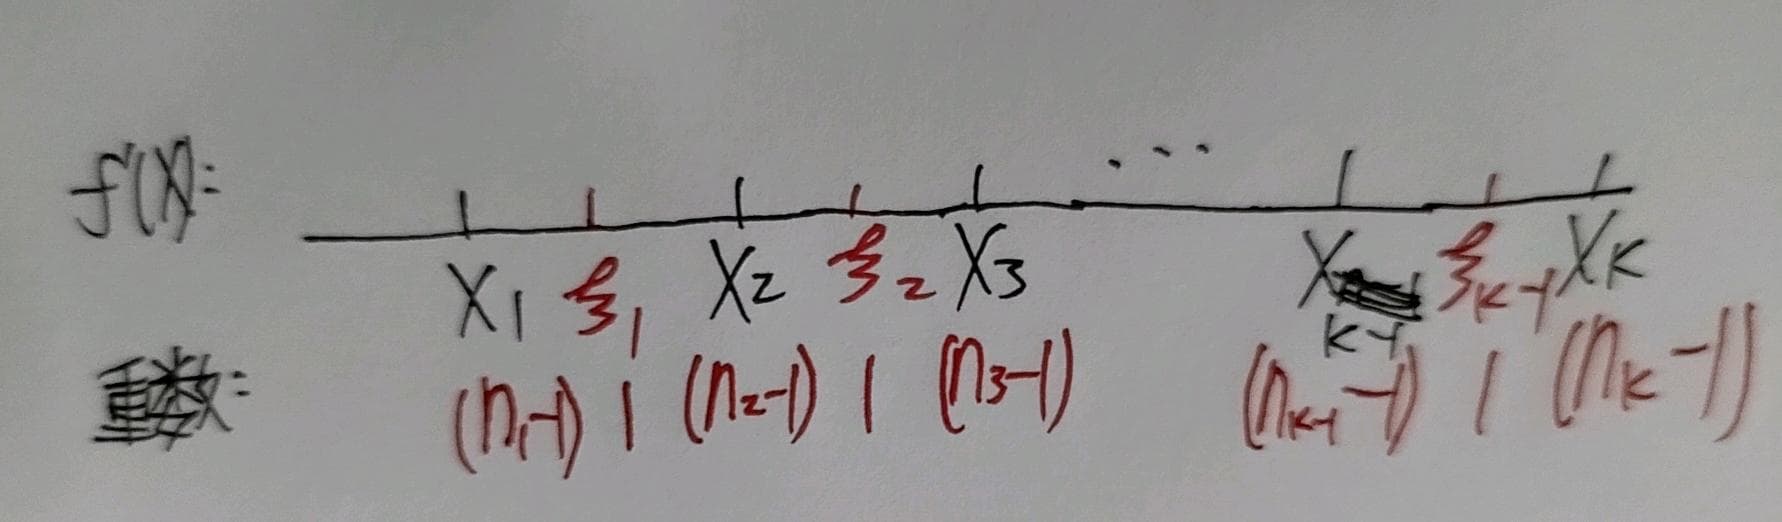 f'(x): ...
x₁ ξ₁ x₂ ξ₂ x₃ x ξₖ₋₁ xₖ
k-1
重数: (n₁-1) 1 (n₂-1) 1 (n₃-1) (nₖ₋₁-1) 1 (nₖ-1)